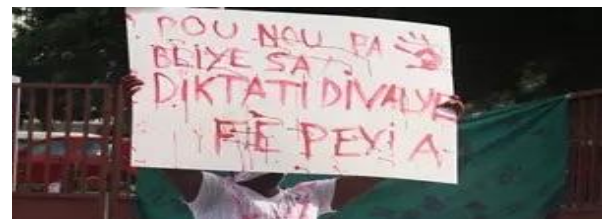 POU NOU PA
BLIYE SA
DIKTATI DIVALYE
FÈ PEYI A